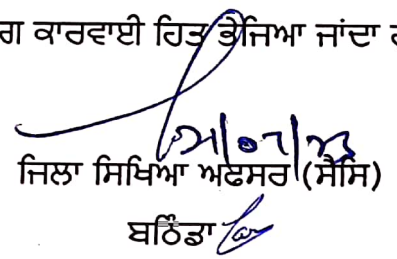 ਗ ਕਾਰਵਾਈ ਹਿਤ ਭੇਜਿਆ ਜਾਂਦਾ
ਜਿਲਾ ਸਿਖਿਆ ਅਫਸਰ (ਸੈਸਿ)
ਬਠਿੰਡਾ